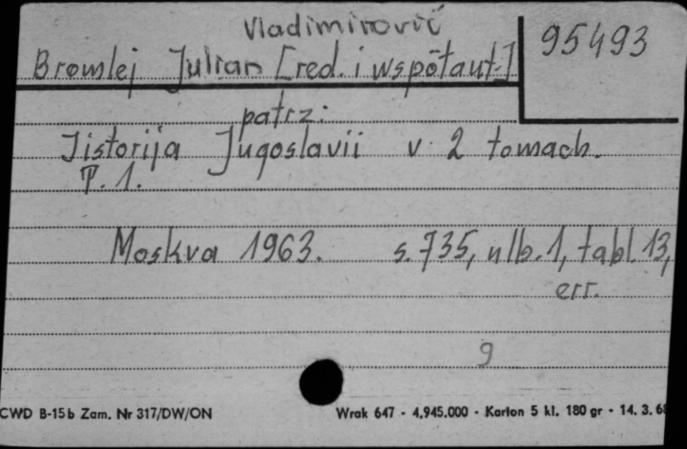 Vladimirovič
95493
Bromlej Julian [red. i współaut.]
patrz:
Jistorija Jugoslavii v 2 tomach.
T. 1.
Moskva 1963. s. 735, nlb. 1, tabl. 13,
err.
9
CWD B-15b Zam. Nr 317/DW/ON Wrak 647 - 4.945.000 - Karton 5 kl. 180 gr - 14. 3. 68